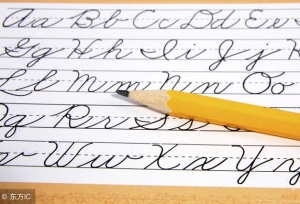 Aa Bb Cc Dd Ee
Gg Hh Ii Jj
Ll Mm Nn Oo
q Rr Ss
v Ww Xx Yy
© 东方IC